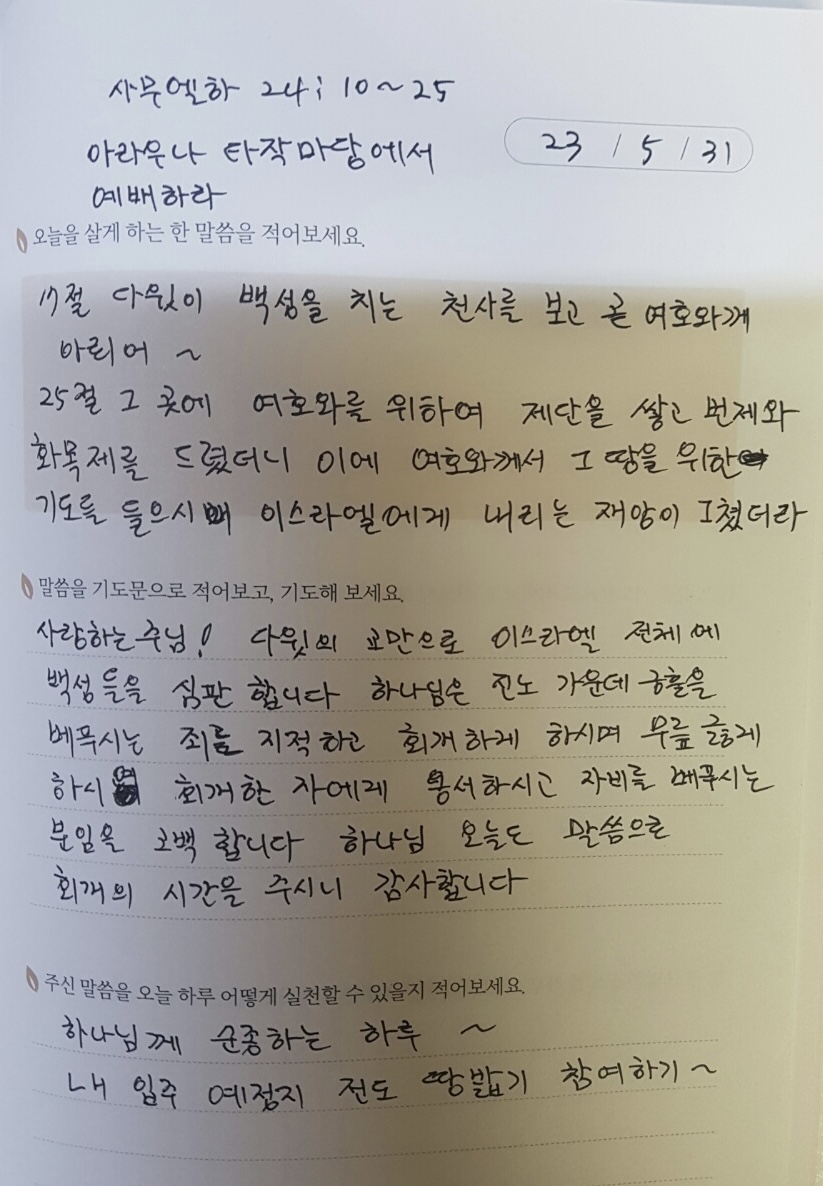 사무엘하 24:10~25
23 / 5 / 31
아라우나 타작마당에서
예배하라
오늘을 살게 하는 한 말씀을 적어보세요.
17절 다윗이 백성을 치는 천사를 보고 곧 여호와께
아뢰어 ~
25절 그 곳에 여호와를 위하여 제단을 쌓고 번제와
화목제를 드렸더니 이에 여호와께서 그 땅을 위한
기도를 들으시매 이스라엘에게 내리는 재앙이 그쳤더라
말씀을 기도문으로 적어보고, 기도해 보세요.
사랑하는 주님! 다윗의 교만으로 이스라엘 전체에
백성들을 심판 합니다 하나님은 진노 가운데 긍휼을
베푸시는 죄를 지적하고 회개하게 하시며 무릎 꿇게
하시며 회개한 자에게 용서하시고 자비를 베푸시는
분임을 고백 합니다 하나님 오늘도 말씀으로
회개의 시간을 주시니 감사합니다
주신 말씀을 오늘 하루 어떻게 실천할 수 있을지 적어보세요.
하나님께 순종하는 하루 ~
내 입주 예정지 전도 땅밟기 참여하기 ~